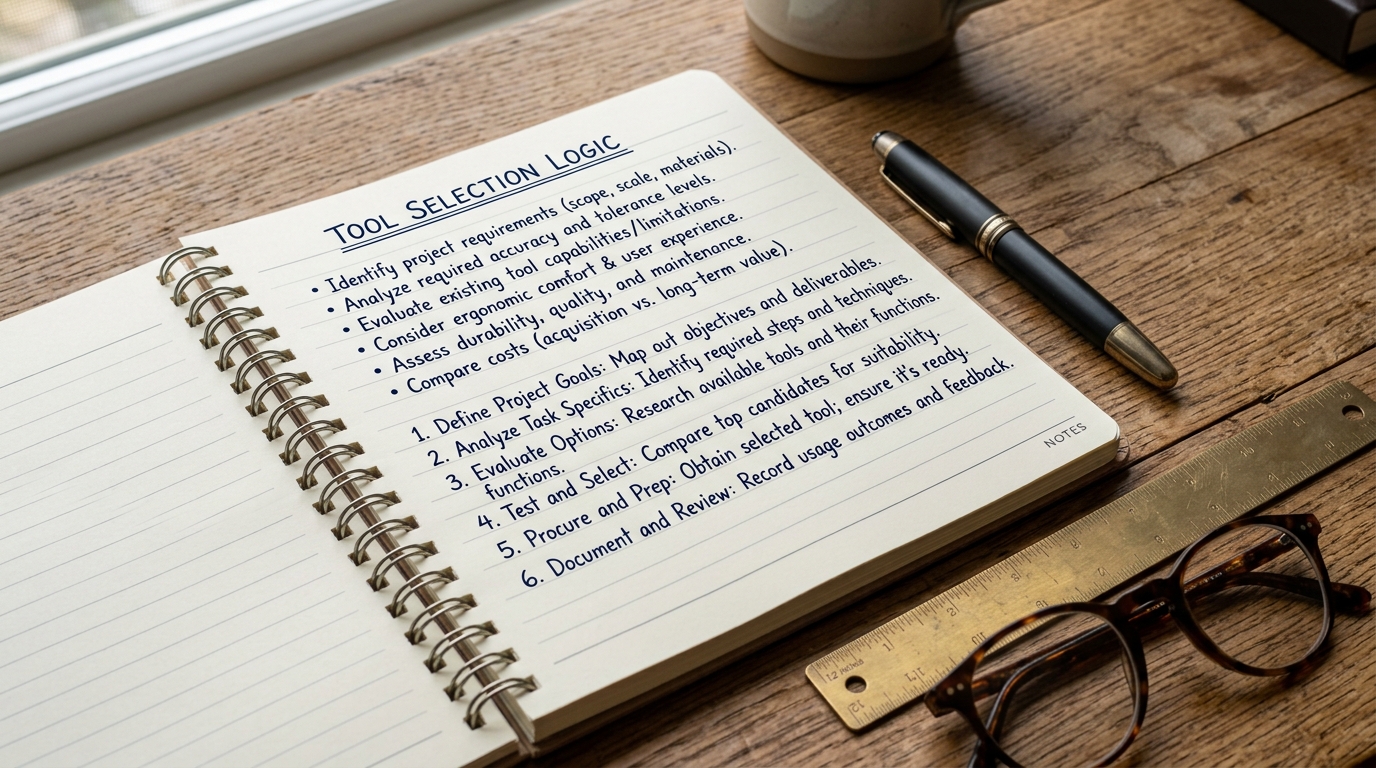 TOOL SELECTION LOGIC
• Identify project requirements (scope, scale, materials).
• Analyze required accuracy and tolerance levels.
• Evaluate existing tool capabilities/limitations.
• Consider ergonomic comfort & user experience.
• Assess durability, quality, and maintenance.
• Compare costs (acquisition vs. long-term value).
1. Define Project Goals: Map out objectives and deliverables.
2. Analyze Task Specifics: Identify required steps and techniques.
3. Evaluate Options: Research available tools and their functions.
functions.
4. Test and Select: Compare top candidates for suitability.
5. Procure and Prep: Obtain selected tool; ensure it's ready.
6. Document and Review: Record usage outcomes and feedback.
NOTES